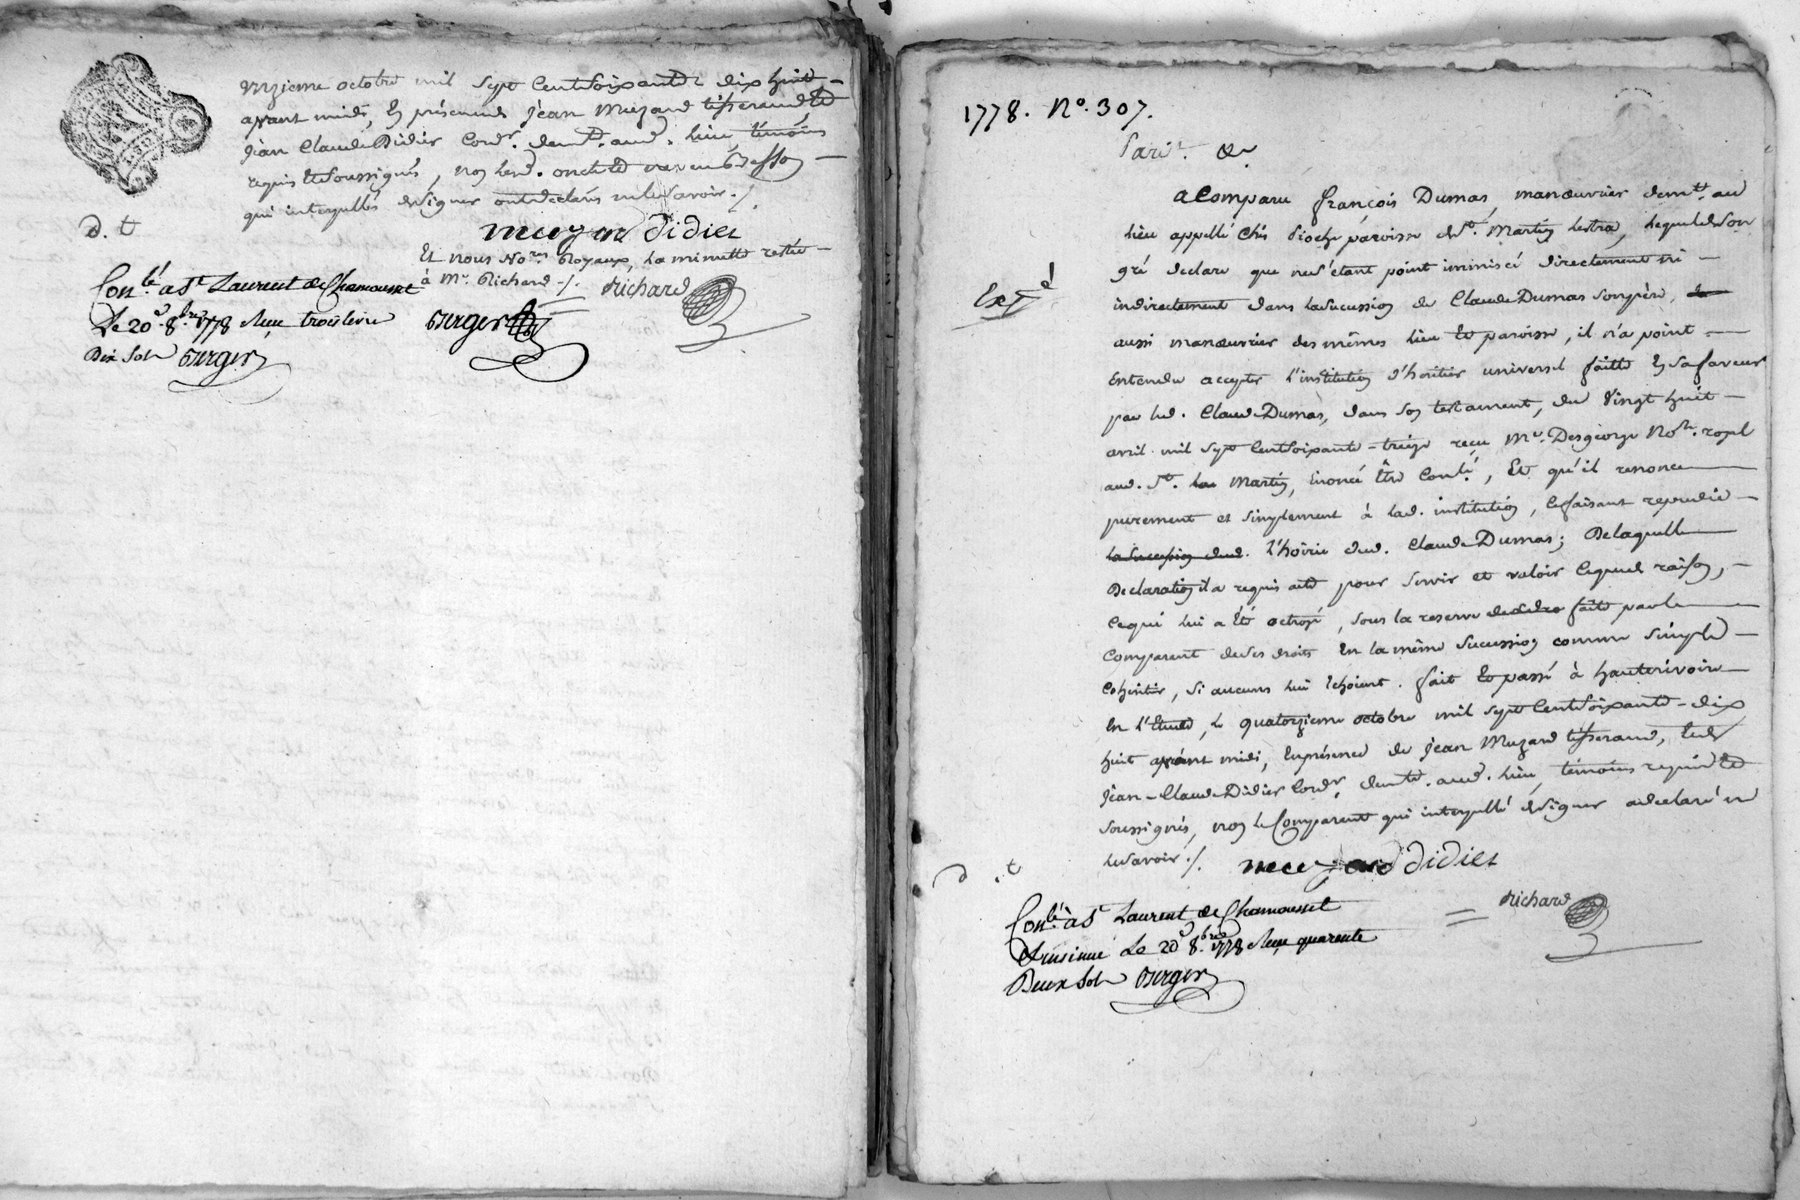 onzieme octobre mil sept Cent Soixante dix huit -
avant midi, En présence de jean Muzard tisserand Et
jean Claude Didier Cordr. demts. aud. lieu, témoins
requis Et Soussignés, non led.
qui interpellés de Signer ont declarés ne le Savoir ./.
d. t
muzard didier
Et nous Nores. Royaux, la minutte restée -
à Me. Richard ./. Richard
Conlé. a St. Laurent de Chamousset
Le 20d. 8.bre 1778 Reçu trois livre
Dix Sols Berger
Berger
1778. No. 307.
Pardt. &c
a Comparu françois Dumas, manœuvrier demt. au
lieu appellé Chés Pioche paroisse de St. Martin Lestra, lequel de Son
gré declare que ne S'étant point immiscé directement ni -
indirectement dans la Succession de Claude Dumas Son père, de
Expé
aussi manœuvrier des mêmes lieu Et paroisse, il n'a point -
Entendu accepter l'institution d'héritier universel faitte En Sa faveur
par led. Claude Dumas, dans Son testament, du Vingt huit -
avril mil Sept Cent Soixante-treize reçu Me. Desgeorge Nore. royal
aud. St. Martin, Enoncé Être Conlé., Et qu'il renonce
purement et Simplement à lad. institution, Ce faisant repudie -
la Succession dud. l'hoirie dud. Claude Dumas; De laquelle
Declaration il a requis acte pour Servir et valoir Ce que de raison, -
Ce qui lui a Eté octroyé, Sous la reserve faite par le
Comparant de Ses droits En la même Succession comme Simple -
Cohéritier, Si aucuns lui Echoient. fait Et passé à hauterivoire
En l'Etude, le quatorzieme octobre mil Sept Cent Soixante-dix
huit avant midi, En présence de jean Muzard tisserand, Et de
jean-Claude Didier Cordr. demts. aud. lieu, témoins requis Et
Soussignés, non le Comparant qui interpellé de Signer a declaré ne
le Savoir ./. muzard didier
d. t
Richard
Conlé. à St. Laurent de Chamousset
Et insinué Le 20d. 8.bre 1778 Reçu quarente
Deux Sols Berger